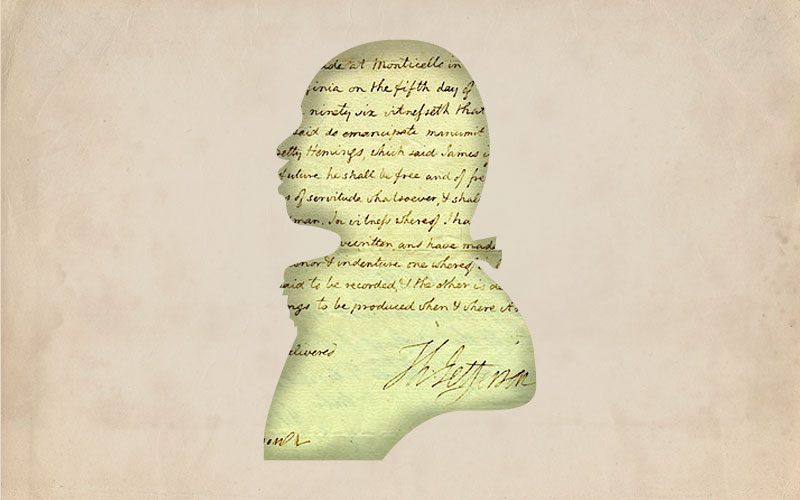 de at Monticello in
ginia on the fifth day of
ninety six witnesseth that
said do emancipate manumit
etty Hemings, which said James
future he shall be free and of
s of servitude whatsoever, & shal
man. In witness whereof I ha
vewritten, and have made
& indenture one whereof
aid to be recorded & the other is de
ngs to be produced when & where
elivered
Th Jefferson